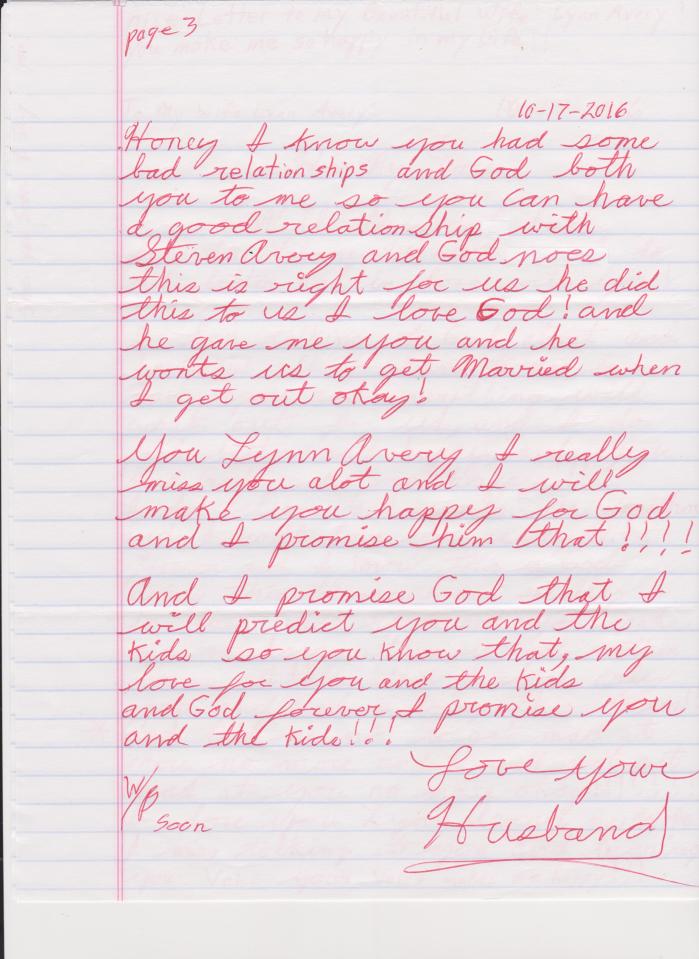 page 3
10-17-2016
Honey I know you had some
bad relationships and God both
you to me so you can have
a good relationship with
Steven Avery and God noes
this is right for us he did
this to us I love God! and
he gave me you and he
wonts us to get Married when
I get out okay!
You Lynn Avery I really
miss you alot and I will
make you happy for God
and I promise him that!!!!
And I promise God that I
will predict you and the
kids so you know that, my
love for you and the kids
and God forever I promise you
and the kids!!!
Love Your
W/B
soon
Husband